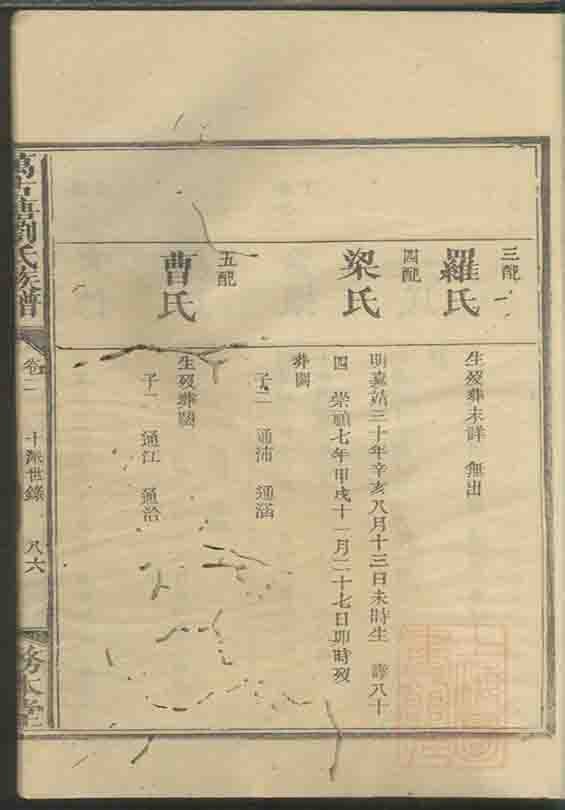 三配
羅氏
生歿葬未詳 無出
四配
梁氏
明嘉靖三十年辛亥八月十三日未時生 壽八十
四 崇禎七年甲戌十一月二十七日卯時歿
葬闕
子二 通沛 通涵
五配
曹氏
生歿葬闕
子二 通江 通洽
萬古塘劉氏族譜
卷二
十派世錄
八六
務本堂